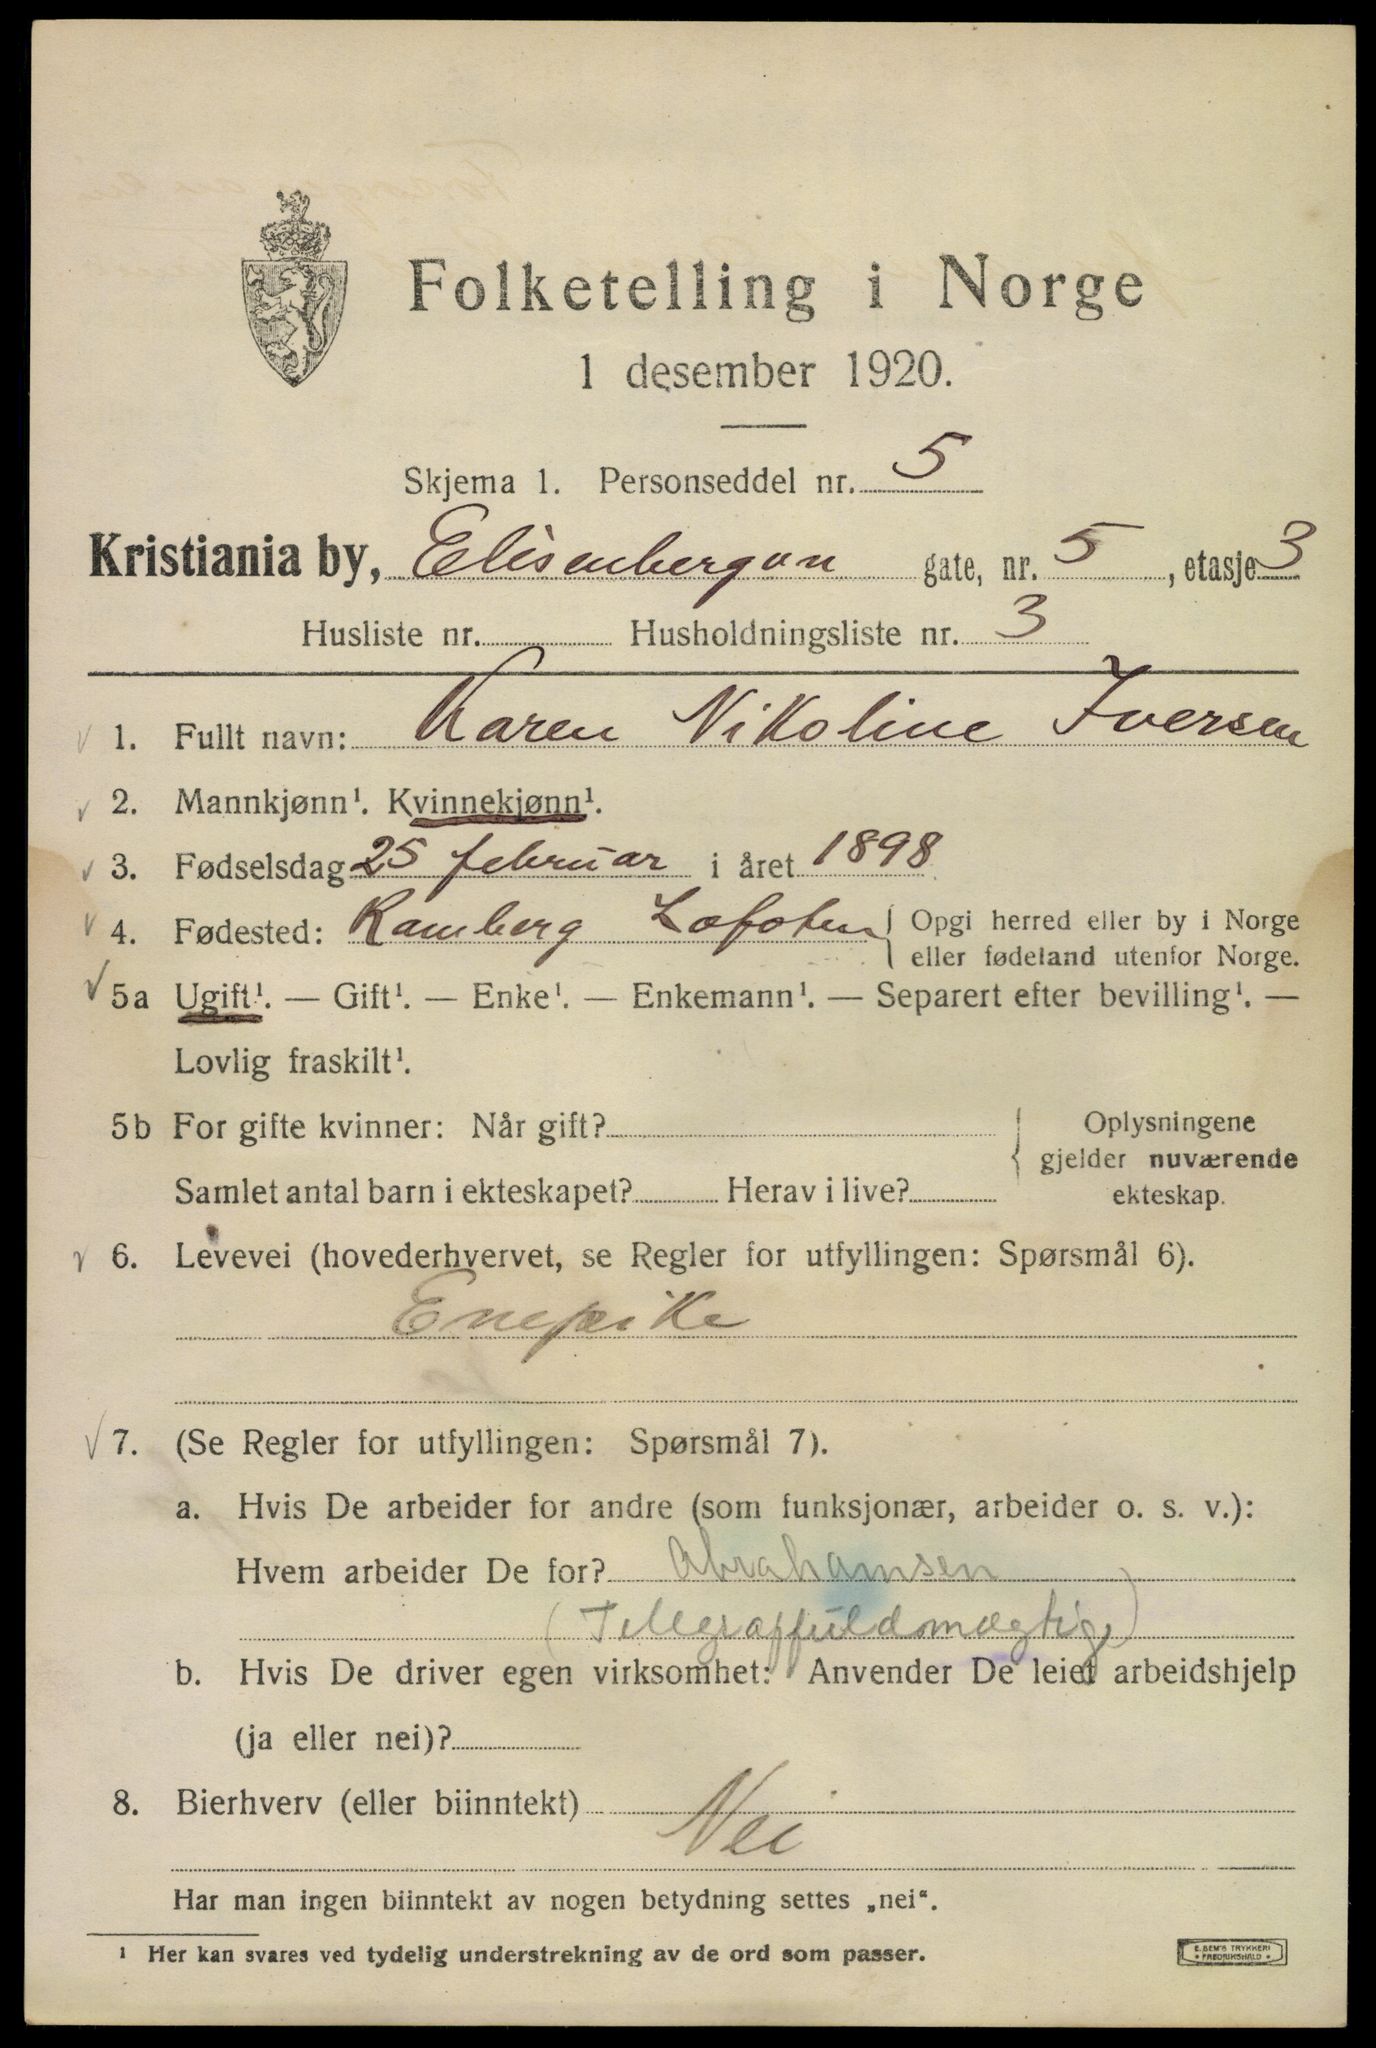 Folketelling i Norge
1 desember 1920.
Skjema 1. Personseddel nr. 5
Kristiania by, Elisenbergvn gate, nr. 5, etasje 3
Husliste nr. Husholdningsliste nr. 3
1. Fullt navn: Karen Nikoline Iversen
2. Mannkjønn¹. Kvinnekjønn¹.
3. Fødselsdag 25 februar i året 1898
4. Fødested: Ramberg Lofoten { Opgi herred eller by i Norge
eller fødeland utenfor Norge.
5a Ugift¹. — Gift¹. — Enke¹. — Enkemann¹. — Separert efter bevilling¹. —
Lovlig fraskilt¹.
5b For gifte kvinner: Når gift? { Oplysningene
gjelder nuværende
Samlet antal barn i ekteskapet? Herav i live? ekteskap.
6. Levevei (hovederhvervet, se Regler for utfyllingen: Spørsmål 6).
Enepike
7. (Se Regler for utfyllingen: Spørsmål 7).
a. Hvis De arbeider for andre (som funksjonær, arbeider o. s. v.):
Hvem arbeider De for? Abrahamsen
(Telegraffuldmægtig)
b. Hvis De driver egen virksomhet: Anvender De leiet arbeidshjelp
(ja eller nei)?
8. Bierhverv (eller biinntekt) Nei
Har man ingen biinntekt av nogen betydning settes „nei“.
¹ Her kan svares ved tydelig understrekning av de ord som passer.
E. SEM'S TRYKKERI
• FREDRIKSHALD •